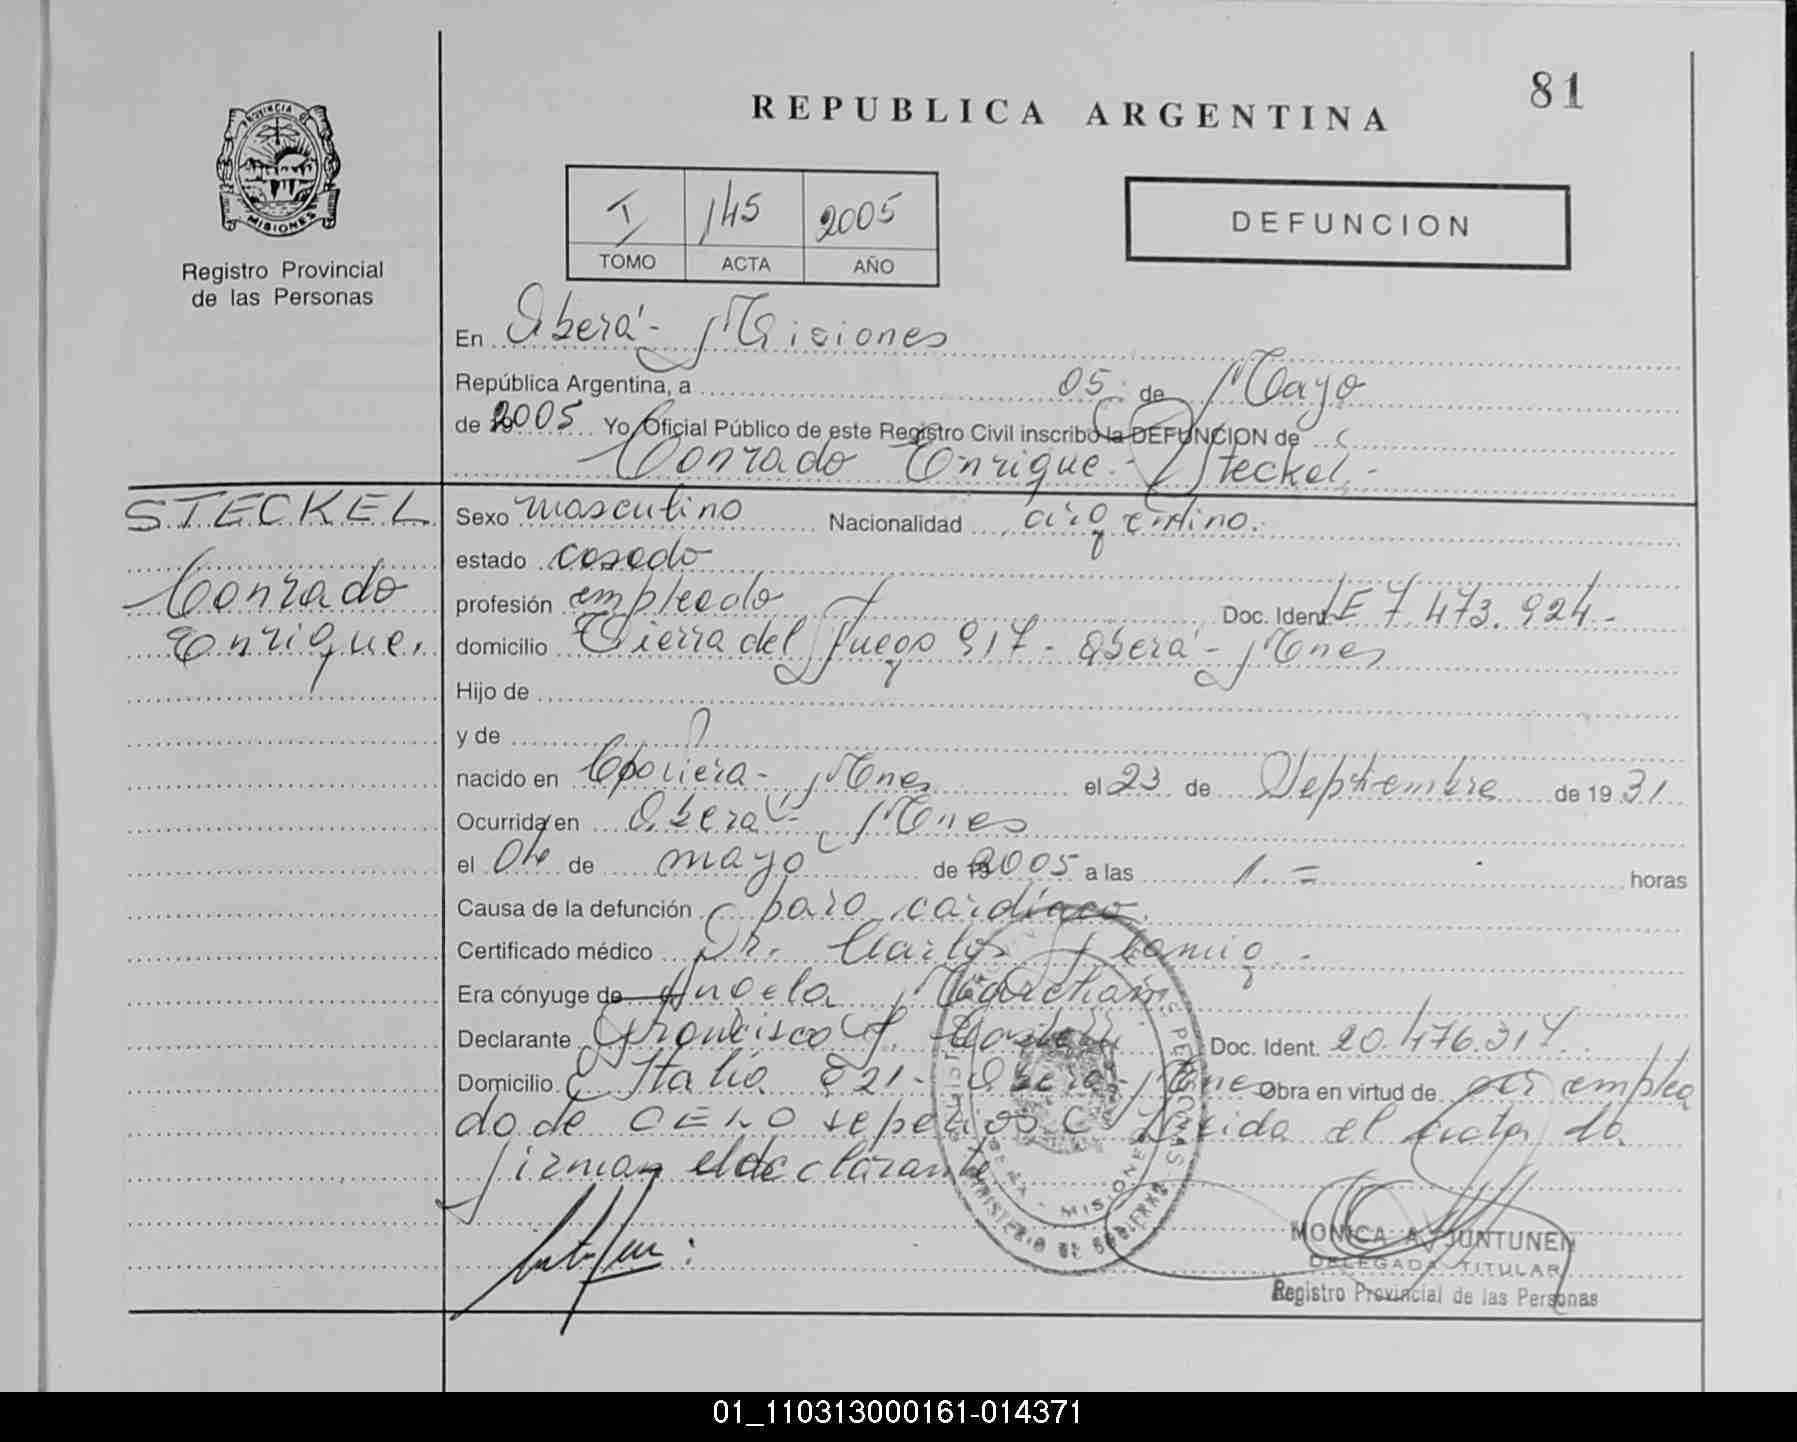 81
REPUBLICA ARGENTINA
PROVINCIA DE
MISIONES
Registro Provincial
de las Personas
I 145 2005
TOMO ACTA AÑO
DEFUNCION
En Oberá - Misiones
República Argentina, a 05 de Mayo
de 2005 Yo Oficial Público de este Registro Civil inscribo la DEFUNCION de
Conrado Enrique Steckel -
STECKEL
Conrado
Enrique
Sexo masculino Nacionalidad argentino.
estado casado
profesión empleado Doc. Ident. LE 7.473.924-
domicilio Tierra del fuego 917 - Oberá - Mnes
Hijo de
y de
nacido en Mnes el 23 de Septiembre de 1931
Ocurrida en Oberá - Mnes
el 04 de mayo de 2005 a las 1.= horas
Causa de la defunción paro cardíaco.
Certificado médico Dr. Carlos
Era cónyuge de Angela
Declarante Francisco Doc. Ident. 20.476.317.
Domicilio Italia 821 - Oberá - Mnes Obra en virtud de ser emplea
do de CELO sepelios Leida el acta la
firman el declarante
MINISTERIO DE GOBIERNO
MISIONES
MONICA A. JUNTUNEN
DELEGADA TITULAR
Registro Provincial de las Personas
01_110313000161-014371